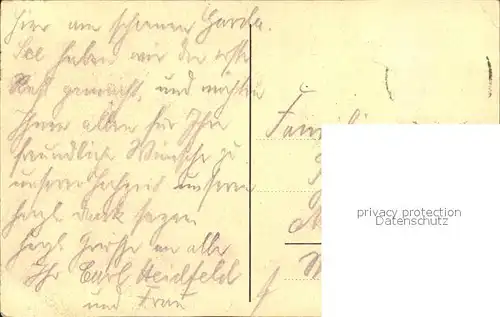 Hier am schoenen Garda.
See haben wir die erste
Rast gemacht, und möchten
Ihnen allen für Ihre
freundlich Wünsche zu
unserer Hochzeit unseren
herzl. Dank sagen
Herzl. Grüsse an alle
Ihr Earl Heidfeld
und Frau
Familie
privacy protection
Datenschutz